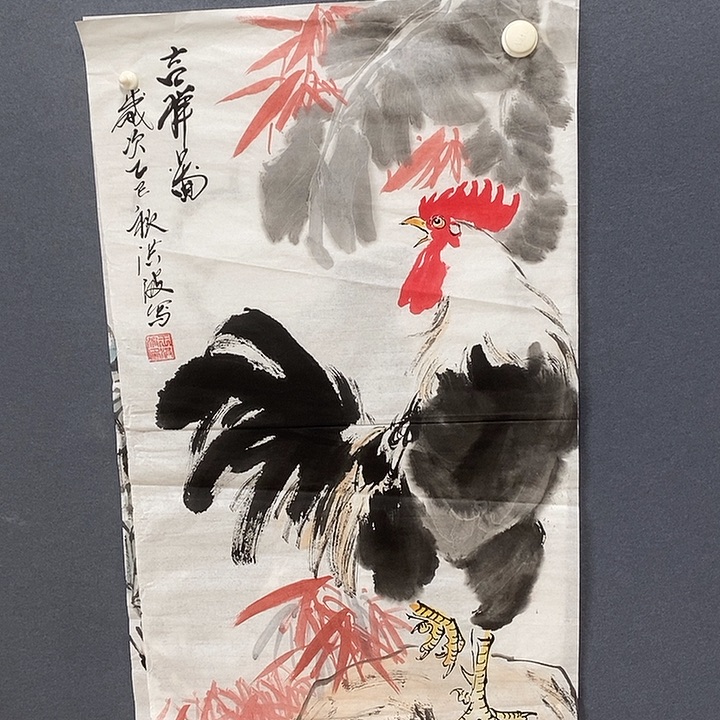 吉祥图
岁次乙巳秋洪波写